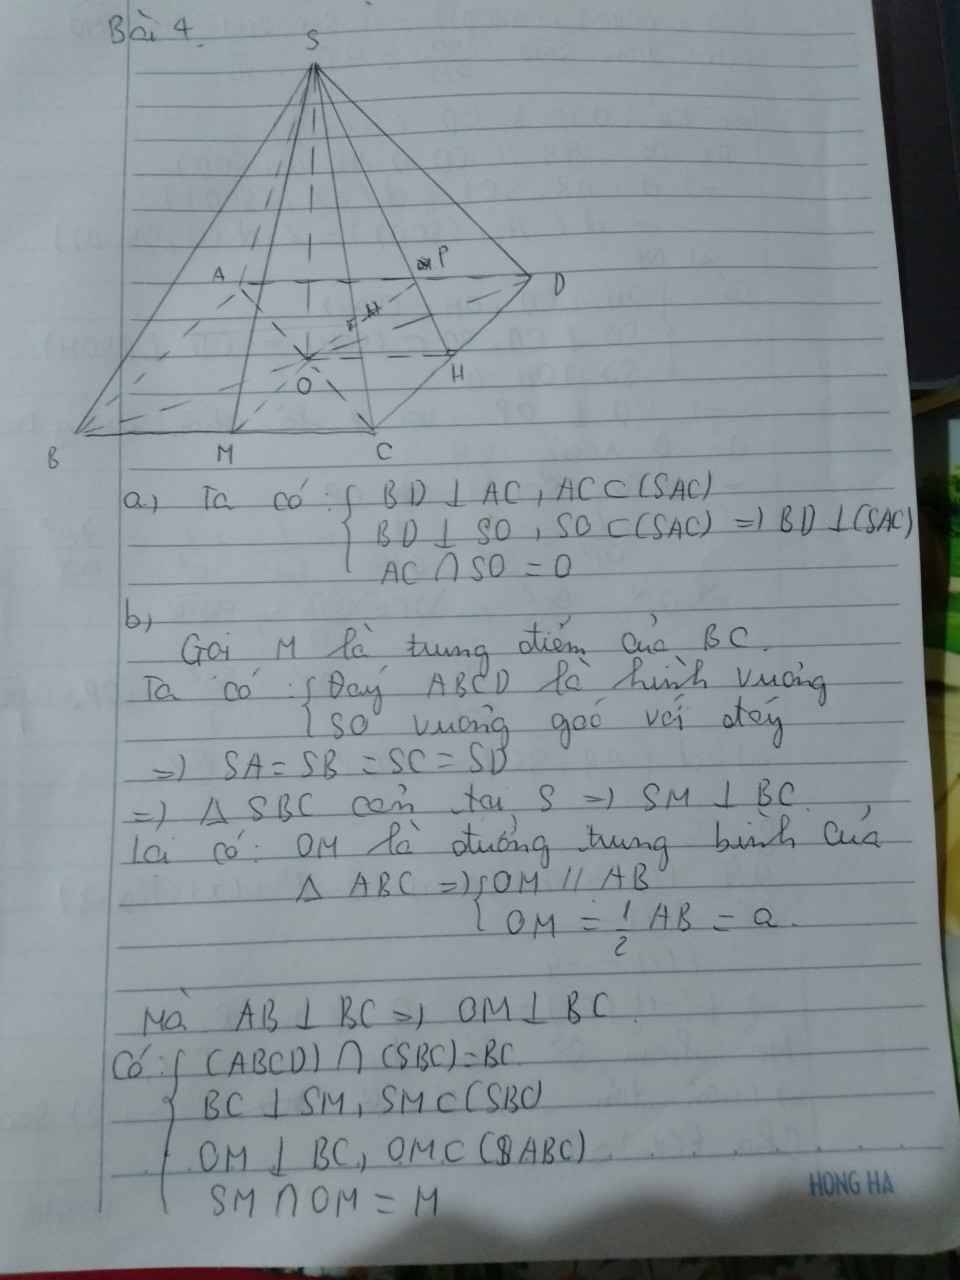 Bài 4.
S
A
P
D
H
O
B
M
C
a, Ta có: { BD ⊥ AC, AC ⊂ (SAC)
BD ⊥ SO, SO ⊂ (SAC) => BD ⊥ (SAC)
AC ∩ SO = O
b,
Gọi M là trung điểm của BC.
Ta có: { Đáy ABCD là hình vuông
SO vuông góc với đáy
=> SA = SB = SC = SD
=> Δ SBC cân tại S => SM ⊥ BC.
Lại có: OM là đường trung bình của
Δ ABC => { OM // AB
OM = 1/2 AB = a.
Mà AB ⊥ BC => OM ⊥ BC.
Có: { (ABCD) ∩ (SBC) = BC
BC ⊥ SM, SM ⊂ (SBC)
OM ⊥ BC, OM ⊂ (ABC)
SM ∩ OM = M
HONG HA